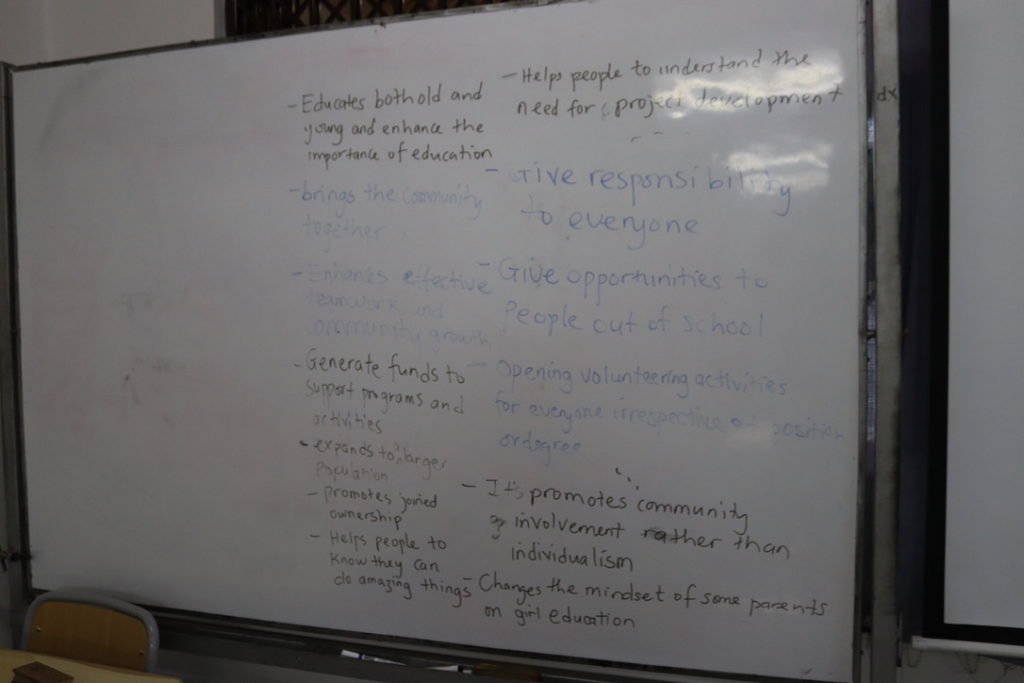 - Educates both old and
young and enhance the
importance of education
- brings the community
together
- Enhances effective
teamwork and
community growth
- Generate funds to
support programs and
activities
- expands to larger
population
- promotes joined
ownership
- Helps people to
know they can
do amazing things
- Helps people to understand the
need for project development
- Give responsibility
to everyone
- Give opportunities to
People out of school
- Opening volunteering activities
for everyone irrespective of position
or degree
- It's promotes community
involvement rather than
individualism
- Changes the mindset of some parents
on girl education
dx